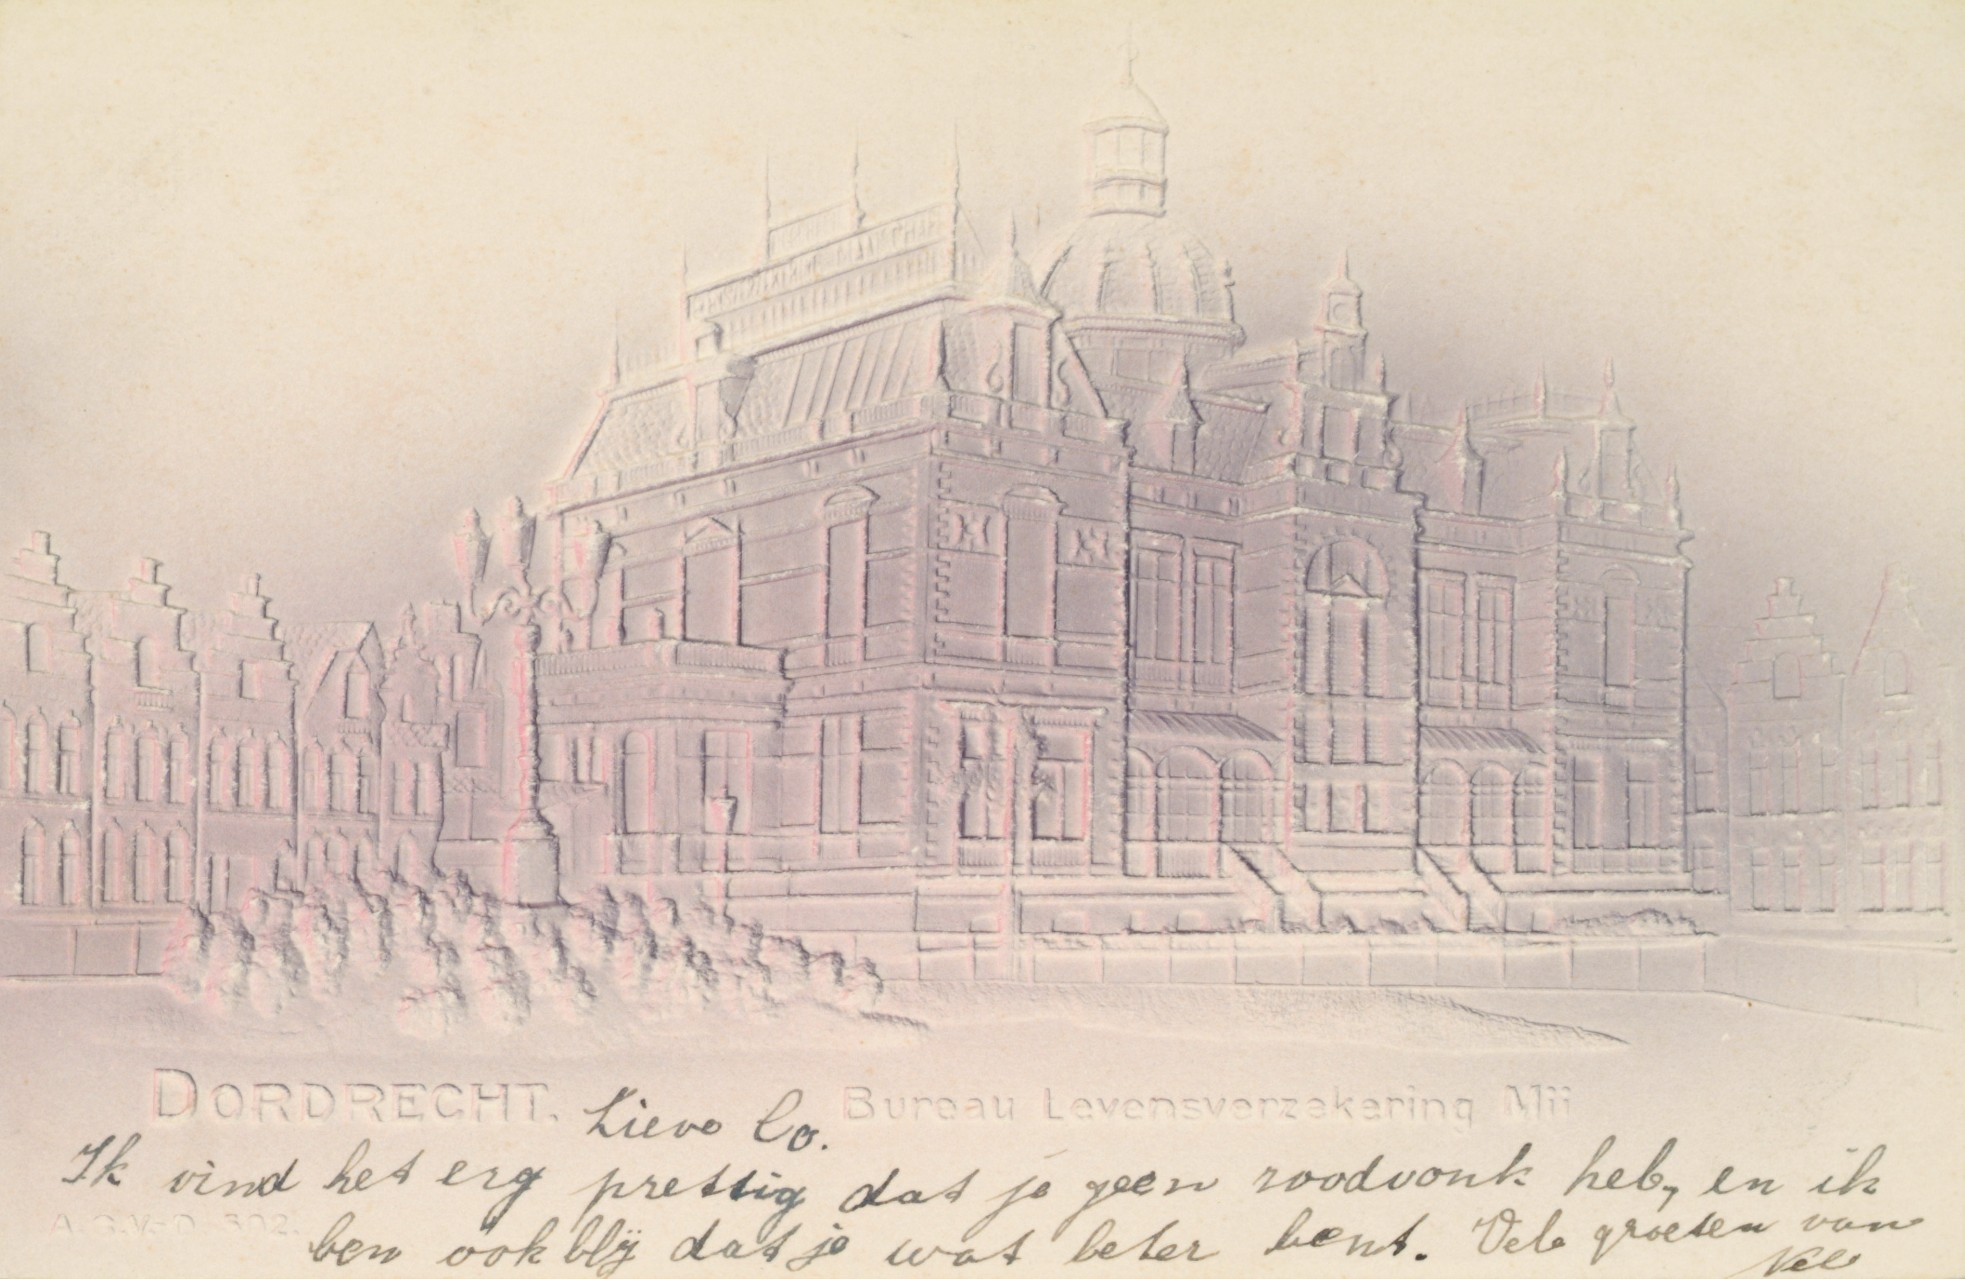 DORDRECHT. Bureau Levensverzekering Mii
Lieve Co.
Ik vind het erg prettig dat je geen roodvonk heb, en ik
A.G.V.-D. 302.
ben ook blij dat je wat beter bent. Vele groeten van
Nel